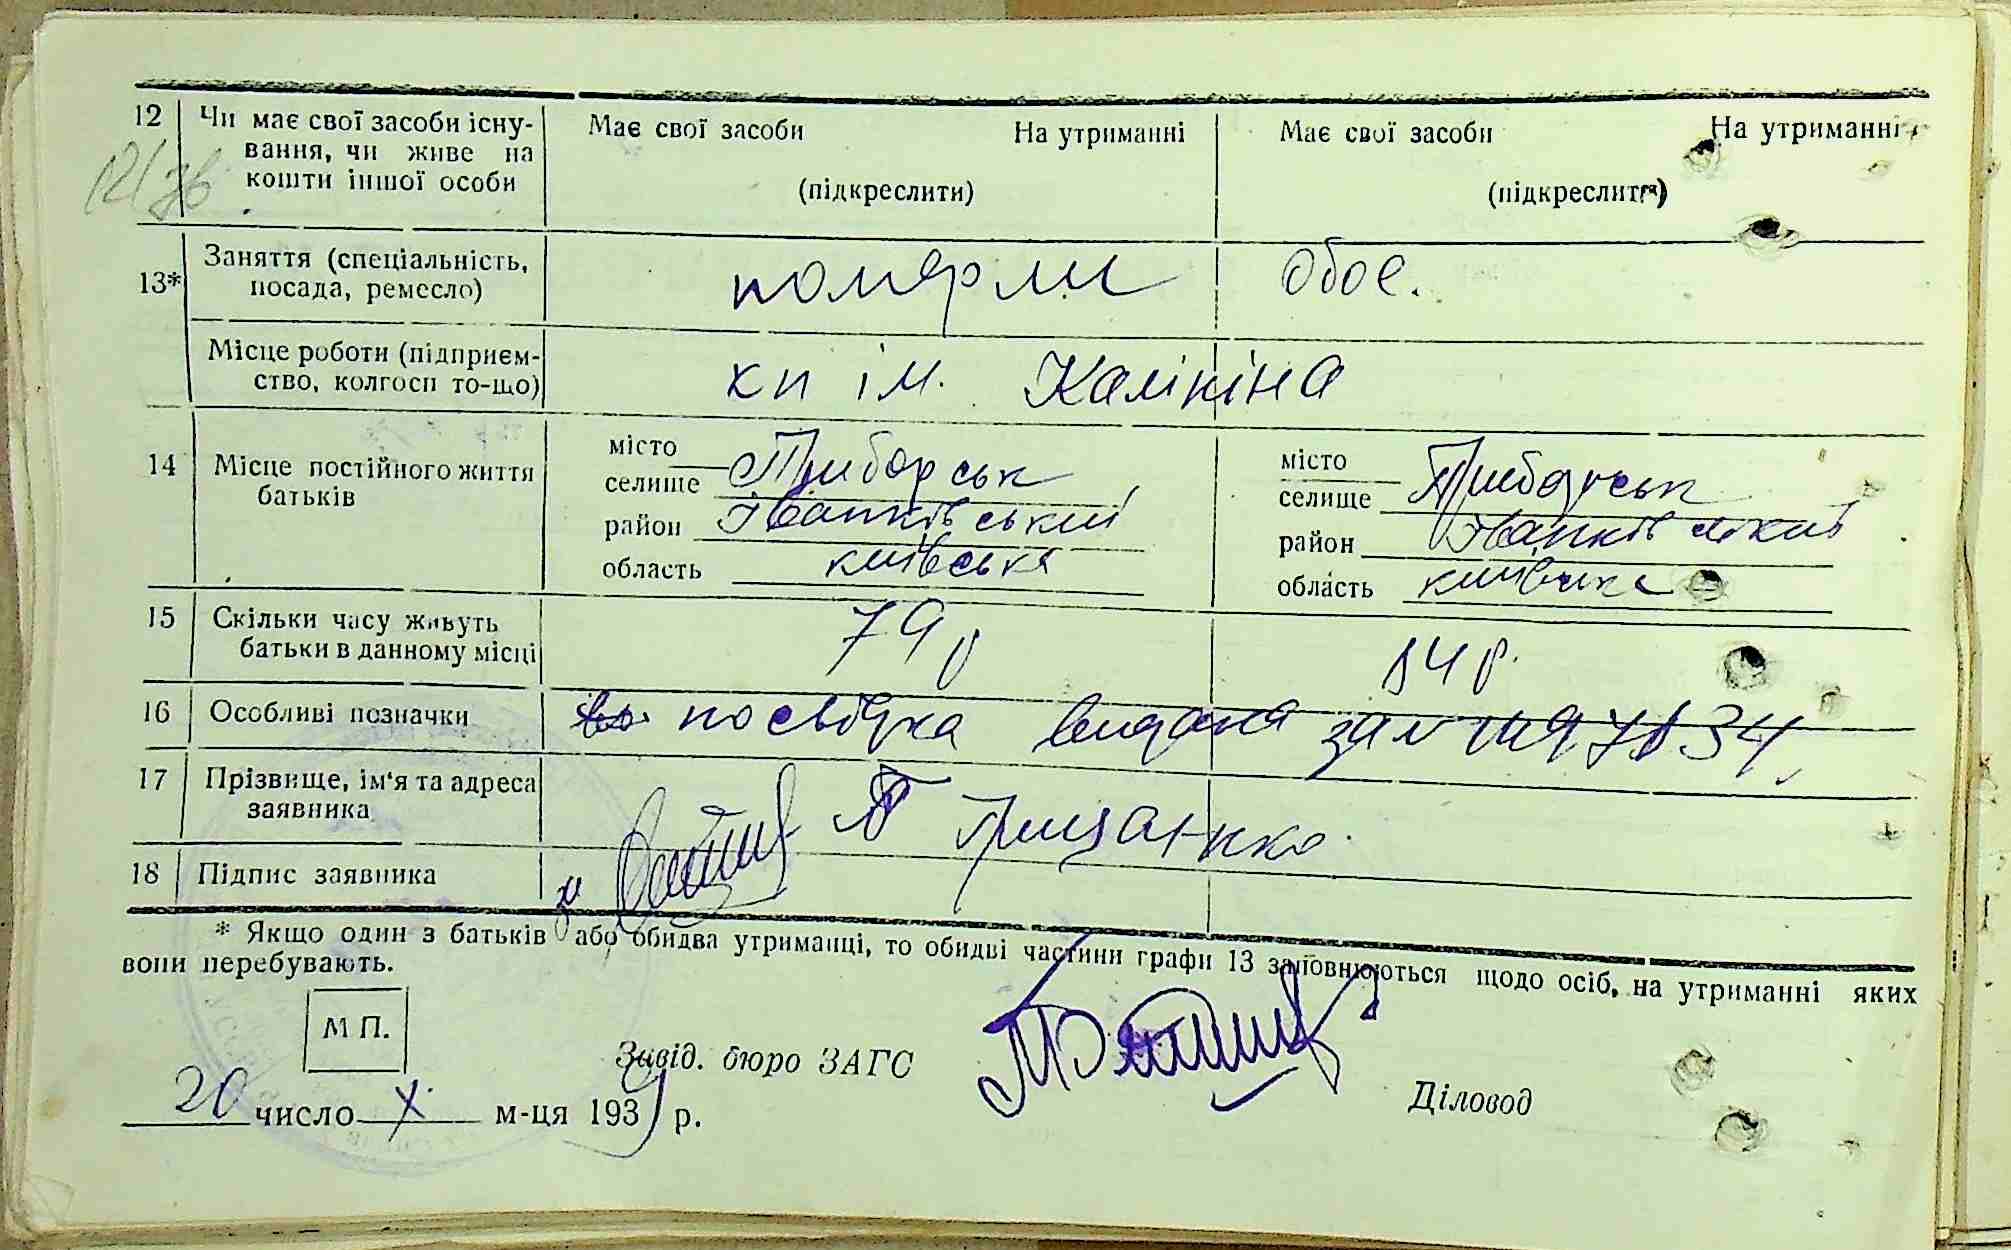 12 Чи має свої засоби існу-
вання, чи живе на
кошти іншої особи
Має свої засоби На утриманні
(підкреслити)
Має свої засоби На утриманні
(підкреслити)
13* Заняття (спеціальність,
посада, ремесло)
померли обоє.
Місце роботи (підприєм-
ство, колгосп то-що)
кп ім. Калініна
14 Місце постійного життя
батьків
місто
селище Приборськ
район Іванківський
область київська
місто
селище Приборськ
район Іванківський
область київська
15 Скільки часу живуть
батьки в данному місці
79 р
84 р.
16 Особливі позначки
посвідка видана за №
17 Прізвище, ім'я та адреса
заявника
Грищенко
18 Підпис заявника
* Якщо один з батьків або обидва утриманці, то обидві частини графи 13 заповнюються щодо осіб, на утриманні яких
вони перебувають.
М П.
Завід. бюро ЗАГС
Діловод
20 число X м-ця 1939 р.